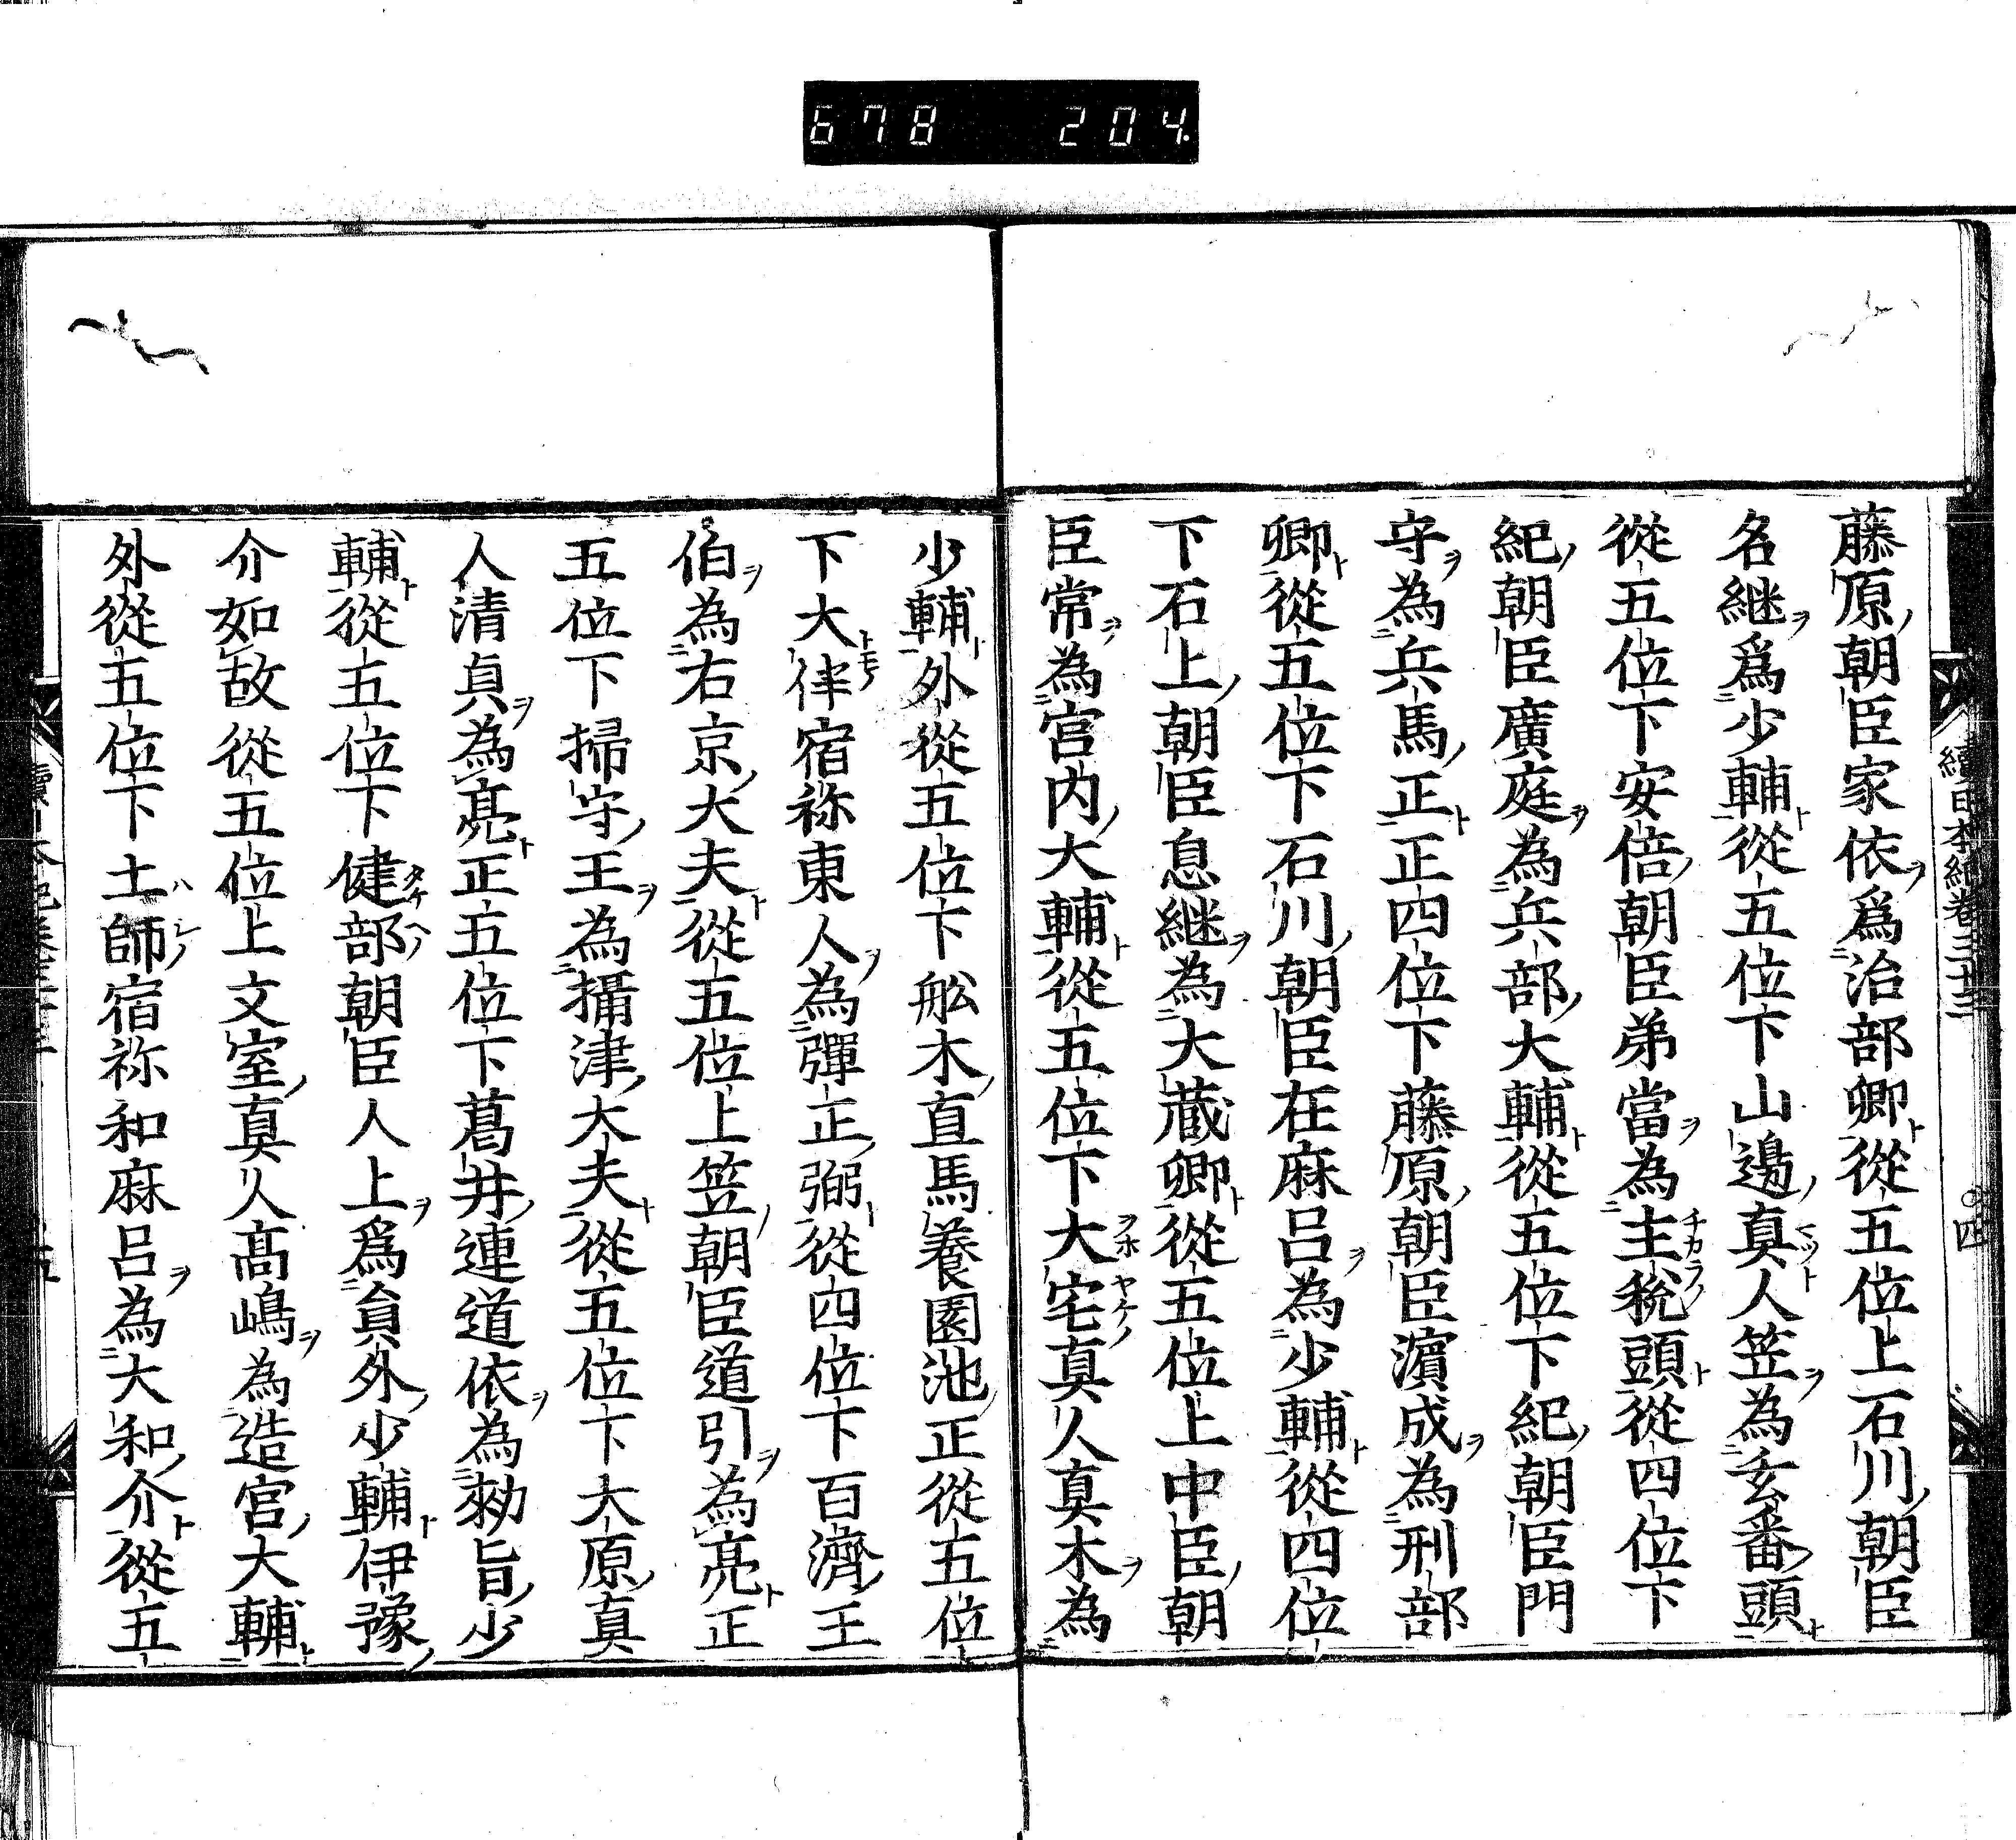 678 204
藤原朝臣家依爲治部卿從五位上石川朝臣
名継爲少輔從五位下山邊真人笠為玄番頭
從五位下安倍朝臣弟當為主稅頭從四位下
紀朝臣廣庭為兵部大輔從五位下紀朝臣門
守為兵馬正正四位下藤原朝臣濵成為刑部
卿從五位下石川朝臣在麻呂為少輔從四位
下石上朝臣息継為大蔵卿從五位上中臣朝
臣常為宮内大輔從五位下大宅真人真木為
少輔外從五位下舩木直馬養園池正從五位
下大伴宿祢東人為彈正弼從四位下百濟王
伯為右京大夫從五位上笠朝臣道引為亮正
五位下掃守王為攝津大夫從五位下大原真
人清貞為亮正五位下葛井連道依為勑旨少
輔從五位下健部朝臣人上爲負外少輔伊豫
介如故從五位上文室真人髙嶋為造宮大輔
外從五位下土師宿祢和麻呂為大和介從五
續日本紀卷三十三
四